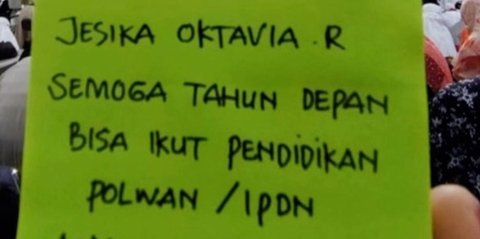 JESIKA OKTAVIA.R
SEMOGA TAHUN DEPAN
BISA IKUT PENDIDIKAN
POLWAN / IPDN